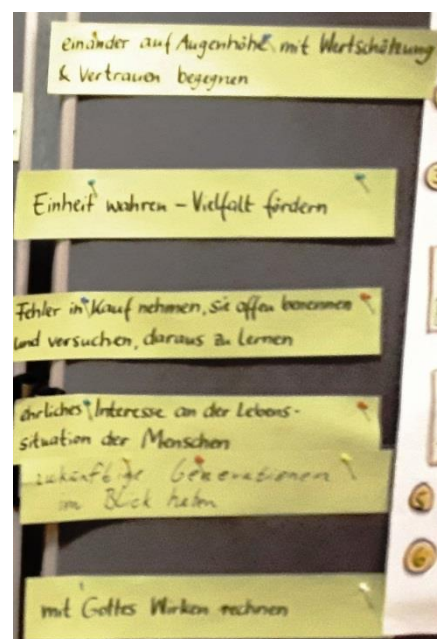 einander auf Augenhöhe mit Wertschätzung
& Vertrauen begegnen
Einheit wahren – Vielfalt fördern
Fehler in Kauf nehmen, sie offen benennen
und versuchen, daraus zu lernen
ehrliches Interesse an der Lebens-
situation der Menschen
zukünftige Generationen
im Blick haben
mit Gottes Wirken rechnen
5
6